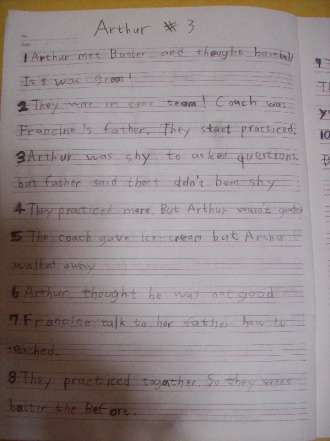 Arthur # 3
No.
Date
1 Arthur met Buster and thought baseball
It's was great!
2 They were in same team! Coach was
Francine's father. They start practiced.
3 Arthur was shy to asked questions
but father said that didn't bem shy
4 They practiced more. But Arthur wasn't good
5 The coach gave ice-cream but Arthur
walked away
6 Arthur thought he was not good
7 Francine talk to her father how to
teached.
8 They practiced togather. So they were
batter the Before.
9
10